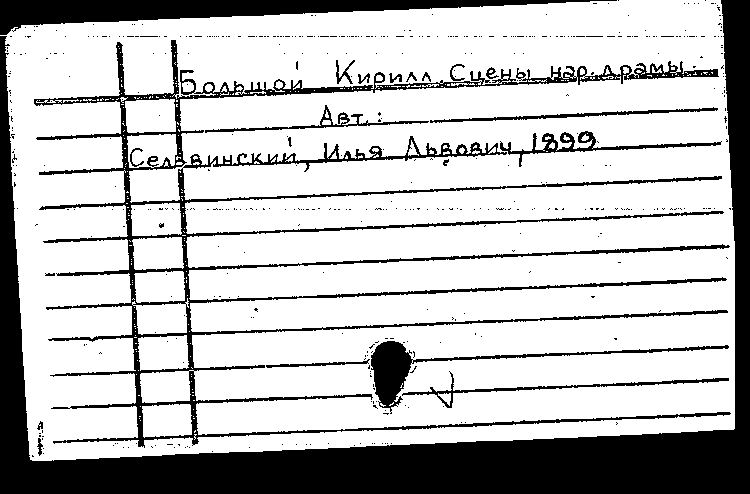 Большой Кирилл. Сцены нар. драмы.
Авт.:
Сельвинский, Илья Львович, 1899